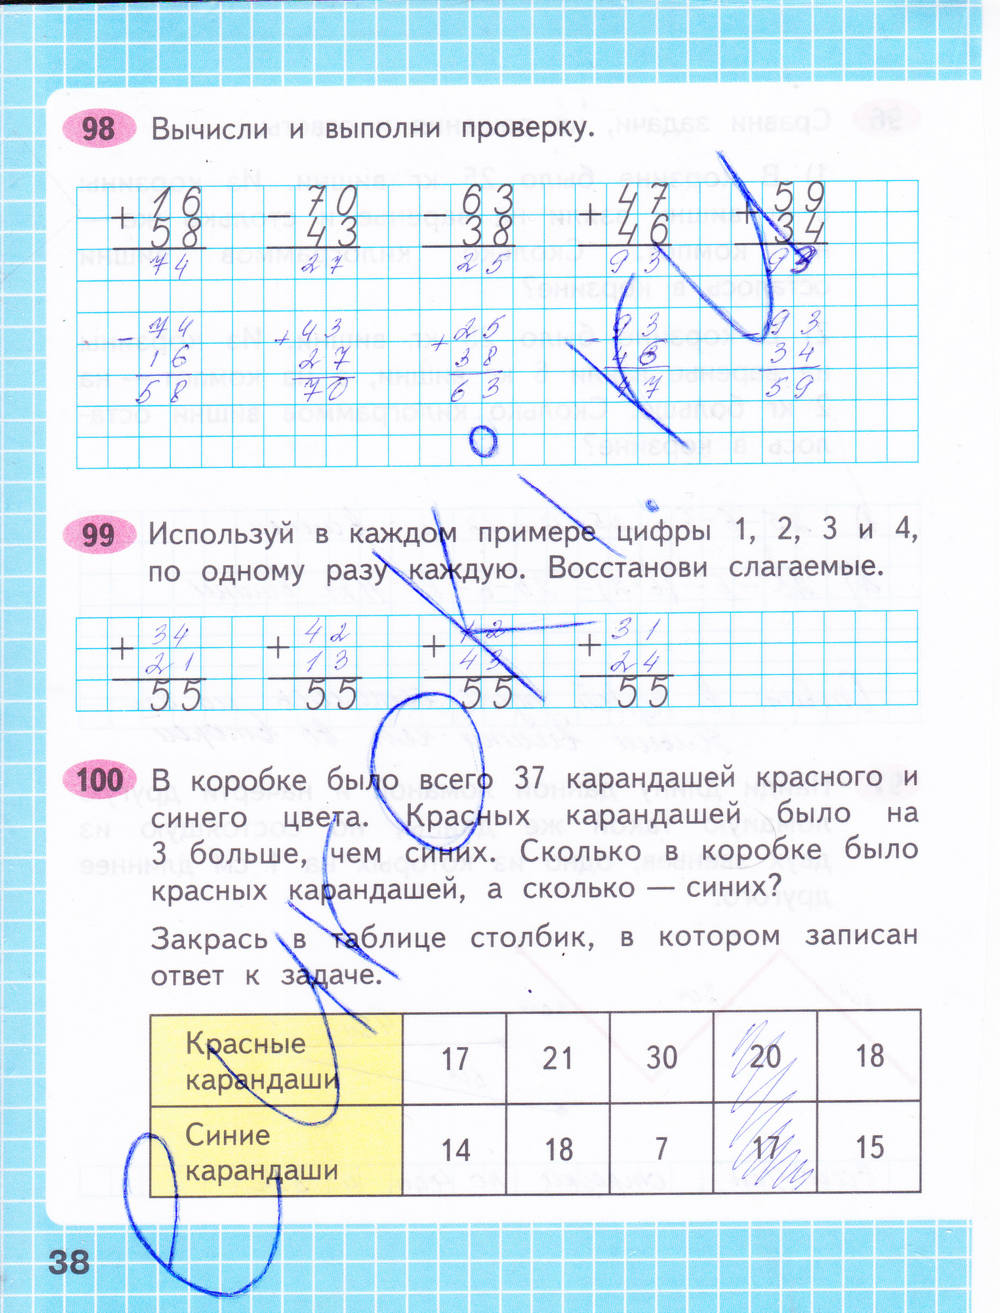 98 Вычисли и выполни проверку.
+16 70 63 +47 59
58 43 38 46 34
74 27 25 93 93
-74 +43 +25 -93 -93
16 27 38 46 34
58 70 63 47 59
99 Используй в каждом примере цифры 1, 2, 3 и 4,
по одному разу каждую. Восстанови слагаемые.
+34 +42 +12 +31
21 13 43 24
55 55 55 55
100 В коробке было всего 37 карандашей красного и
синего цвета. Красных карандашей было на
3 больше, чем синих. Сколько в коробке было
красных карандашей, а сколько — синих?
Закрась в таблице столбик, в котором записан
ответ к задаче.
Красные
карандаши 17 21 30 20 18
Синие
карандаши 14 18 7 17 15
38